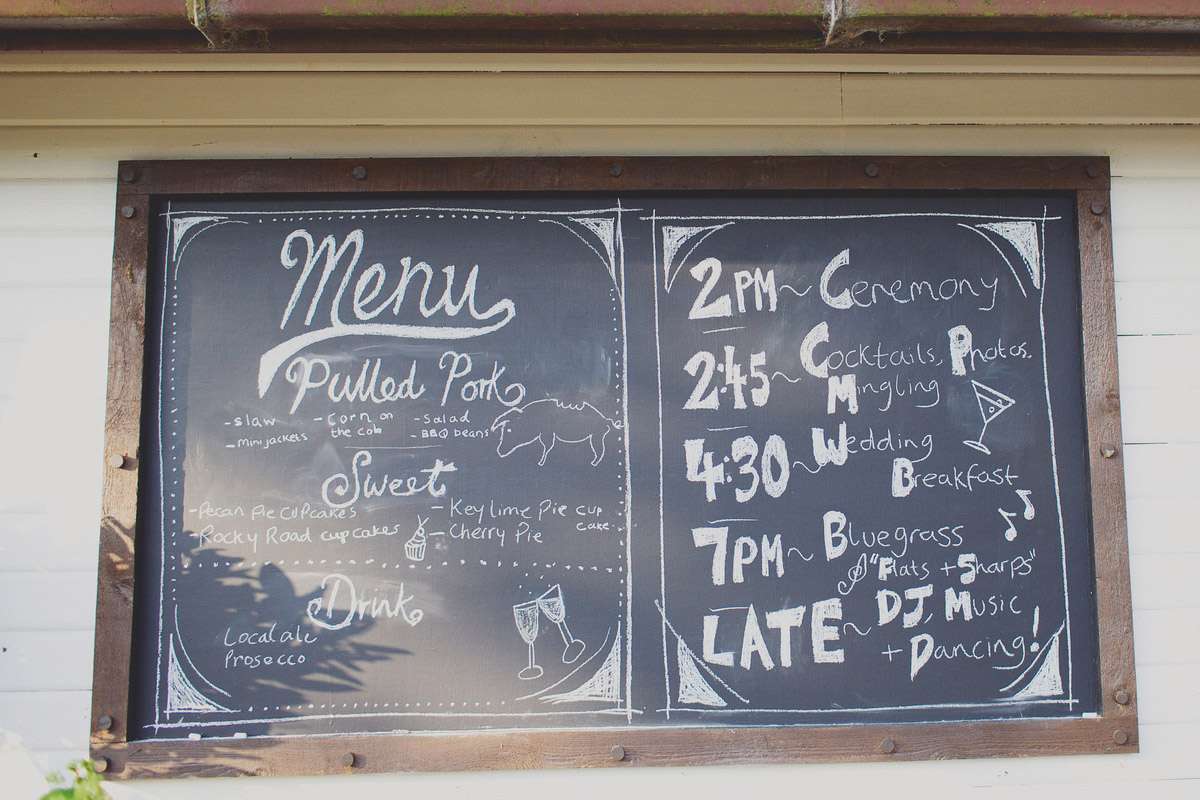 Menu
Pulled Pork
- Slaw - Corn on the Cob - Salad
- mini jackets - BBQ beans
Sweet
- Pecan Pie Cupcakes - Key lime Pie cup cake
- Rocky Road cupcakes - Cherry Pie
Drink
Local ale
Prosecco
2PM ~ Ceremony
2:45 ~ Cocktails, Photos,
Mingling
4:30 ~ Wedding
Breakfast
7PM ~ Bluegrass
"Flats + Sharps"
LATE ~ DJ, Music
+ Dancing!